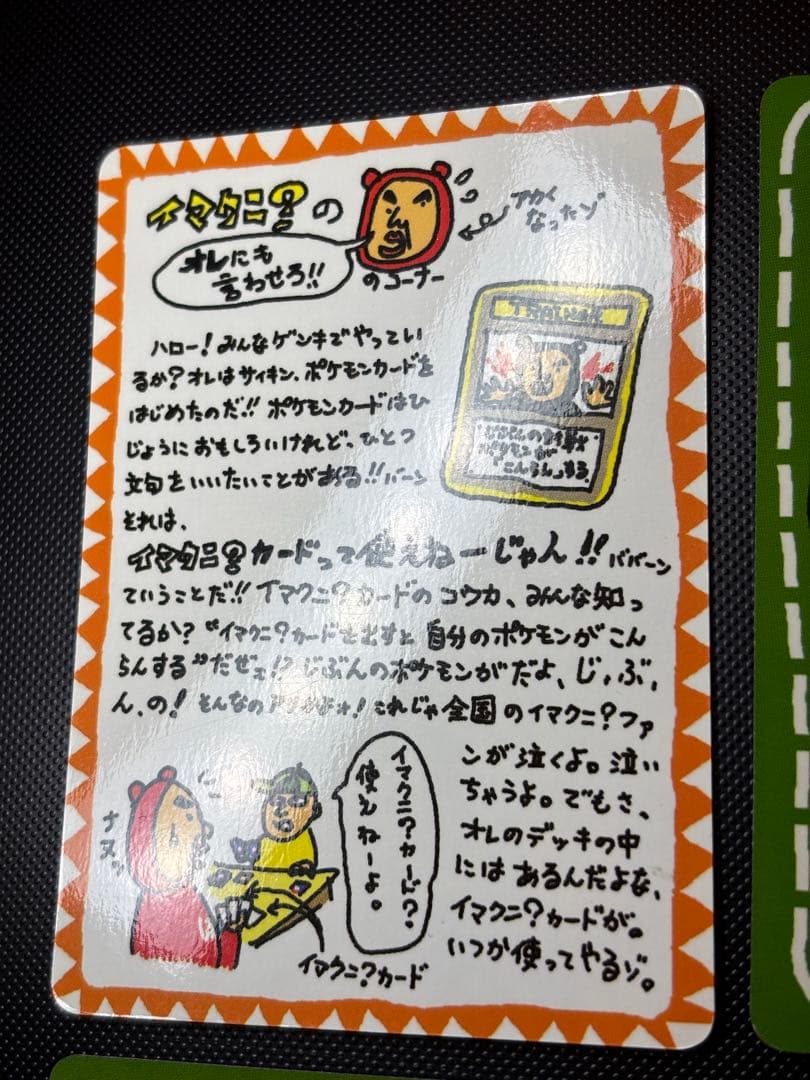 イマクニ？の
オレにも
言わせろ!!
のコーナー
アカく
なったゾ
TRAINER
じぶんの対戦
ポケモンが
「こんらん」する。
ハロー！みんなゲンキでやってい
るか？オレはサイキン、ポケモンカードを
はじめたのだ!!ポケモンカードはひ
じょうにおもしろいけれど、ひとつ
文句をいいたいことがある!!バーン
それは、
イマクニ？カードって使えねーじゃん!!ババーン
ていうことだ!!イマクニ？カードのコウカ、みんな知っ
てるか？“イマクニ？カードを出すと自分のポケモンがこん
らんする”だぜェ!?じぶんのポケモンがだよ、じ、ぶ、
ん、の！そんなの かよォ！これじゃ全国のイマクニ？ファ
ンが泣くよ。泣い
ちゃうよ。でもさ、
オレのデッキの中
にはあるんだよな、
イマクニ？カードが。
いつか使ってやるゾ。
ナヌッ
イマクニ？カード？
使えねーよ。
イマクニ？カード